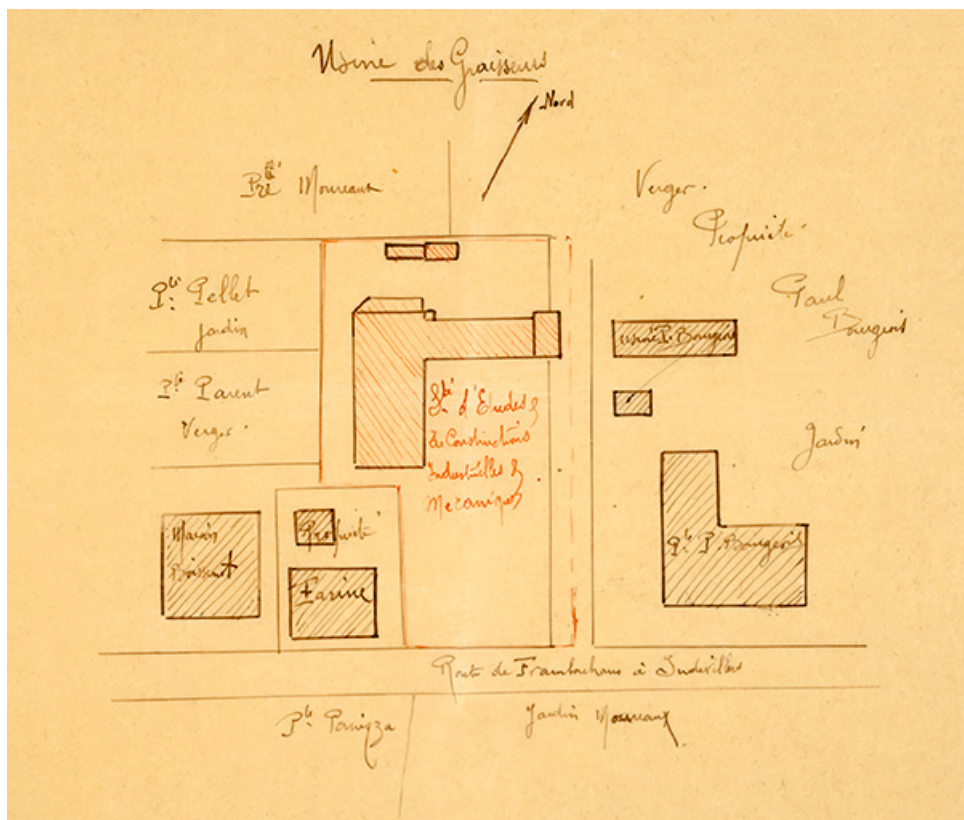 Usine des Graisseurs
Nord
Pté Moureaux
Verger.
Propriété
Paul
Bourgeois
Pté Pellet
Jardin
Usine P. Bourgeois
Pté Parent
Verger.
Sté d'Etudes &
de Constructions
Industrielles &
Mécaniques
Jardin
Maison
Boissenot
Propriété
Farine
Pté P. Bourgeois
Route de Frambouhans à Indevillers
Pté Panizza
Jardin Moureaux